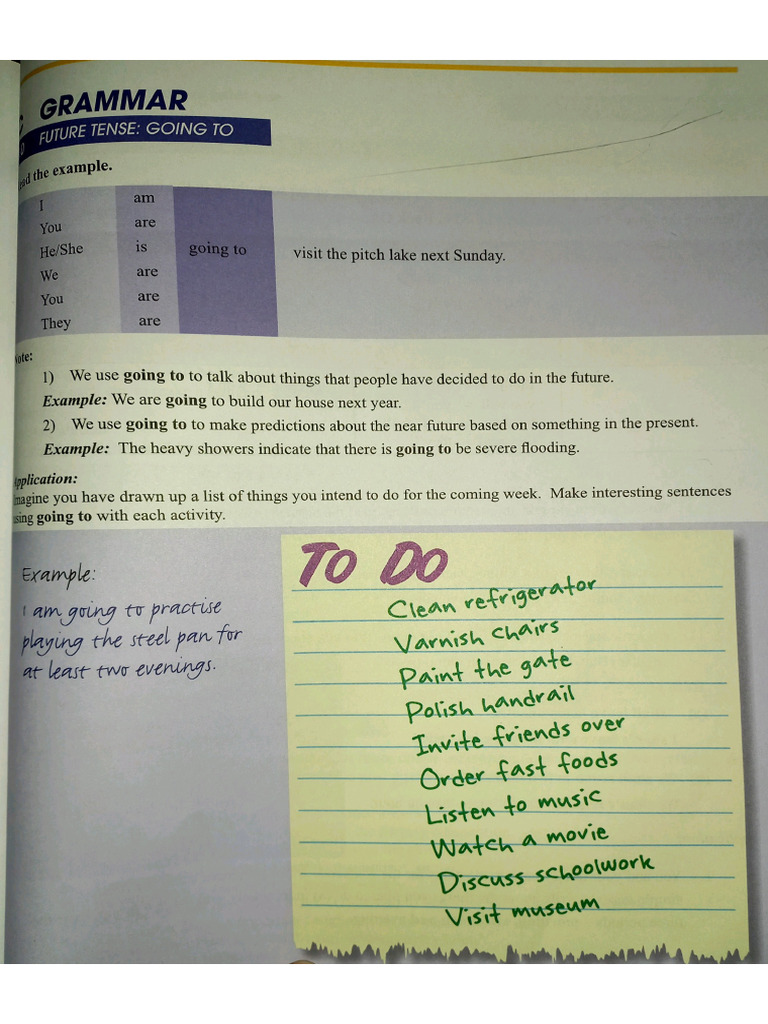 GRAMMAR
FUTURE TENSE: GOING TO
the example.
I am
You are
He/She is going to visit the pitch lake next Sunday.
We are
You are
They are
Note:
1) We use going to to talk about things that people have decided to do in the future.
Example: We are going to build our house next year.
2) We use going to to make predictions about the near future based on something in the present.
Example: The heavy showers indicate that there is going to be severe flooding.
Application:
Imagine you have drawn up a list of things you intend to do for the coming week. Make interesting sentences
using going to with each activity.
Example:
I am going to practise
playing the steel pan for
at least two evenings.
TO DO
Clean refrigerator
Varnish chairs
Paint the gate
Polish handrail
Invite friends over
Order fast foods
Listen to music
Watch a movie
Discuss schoolwork
Visit museum